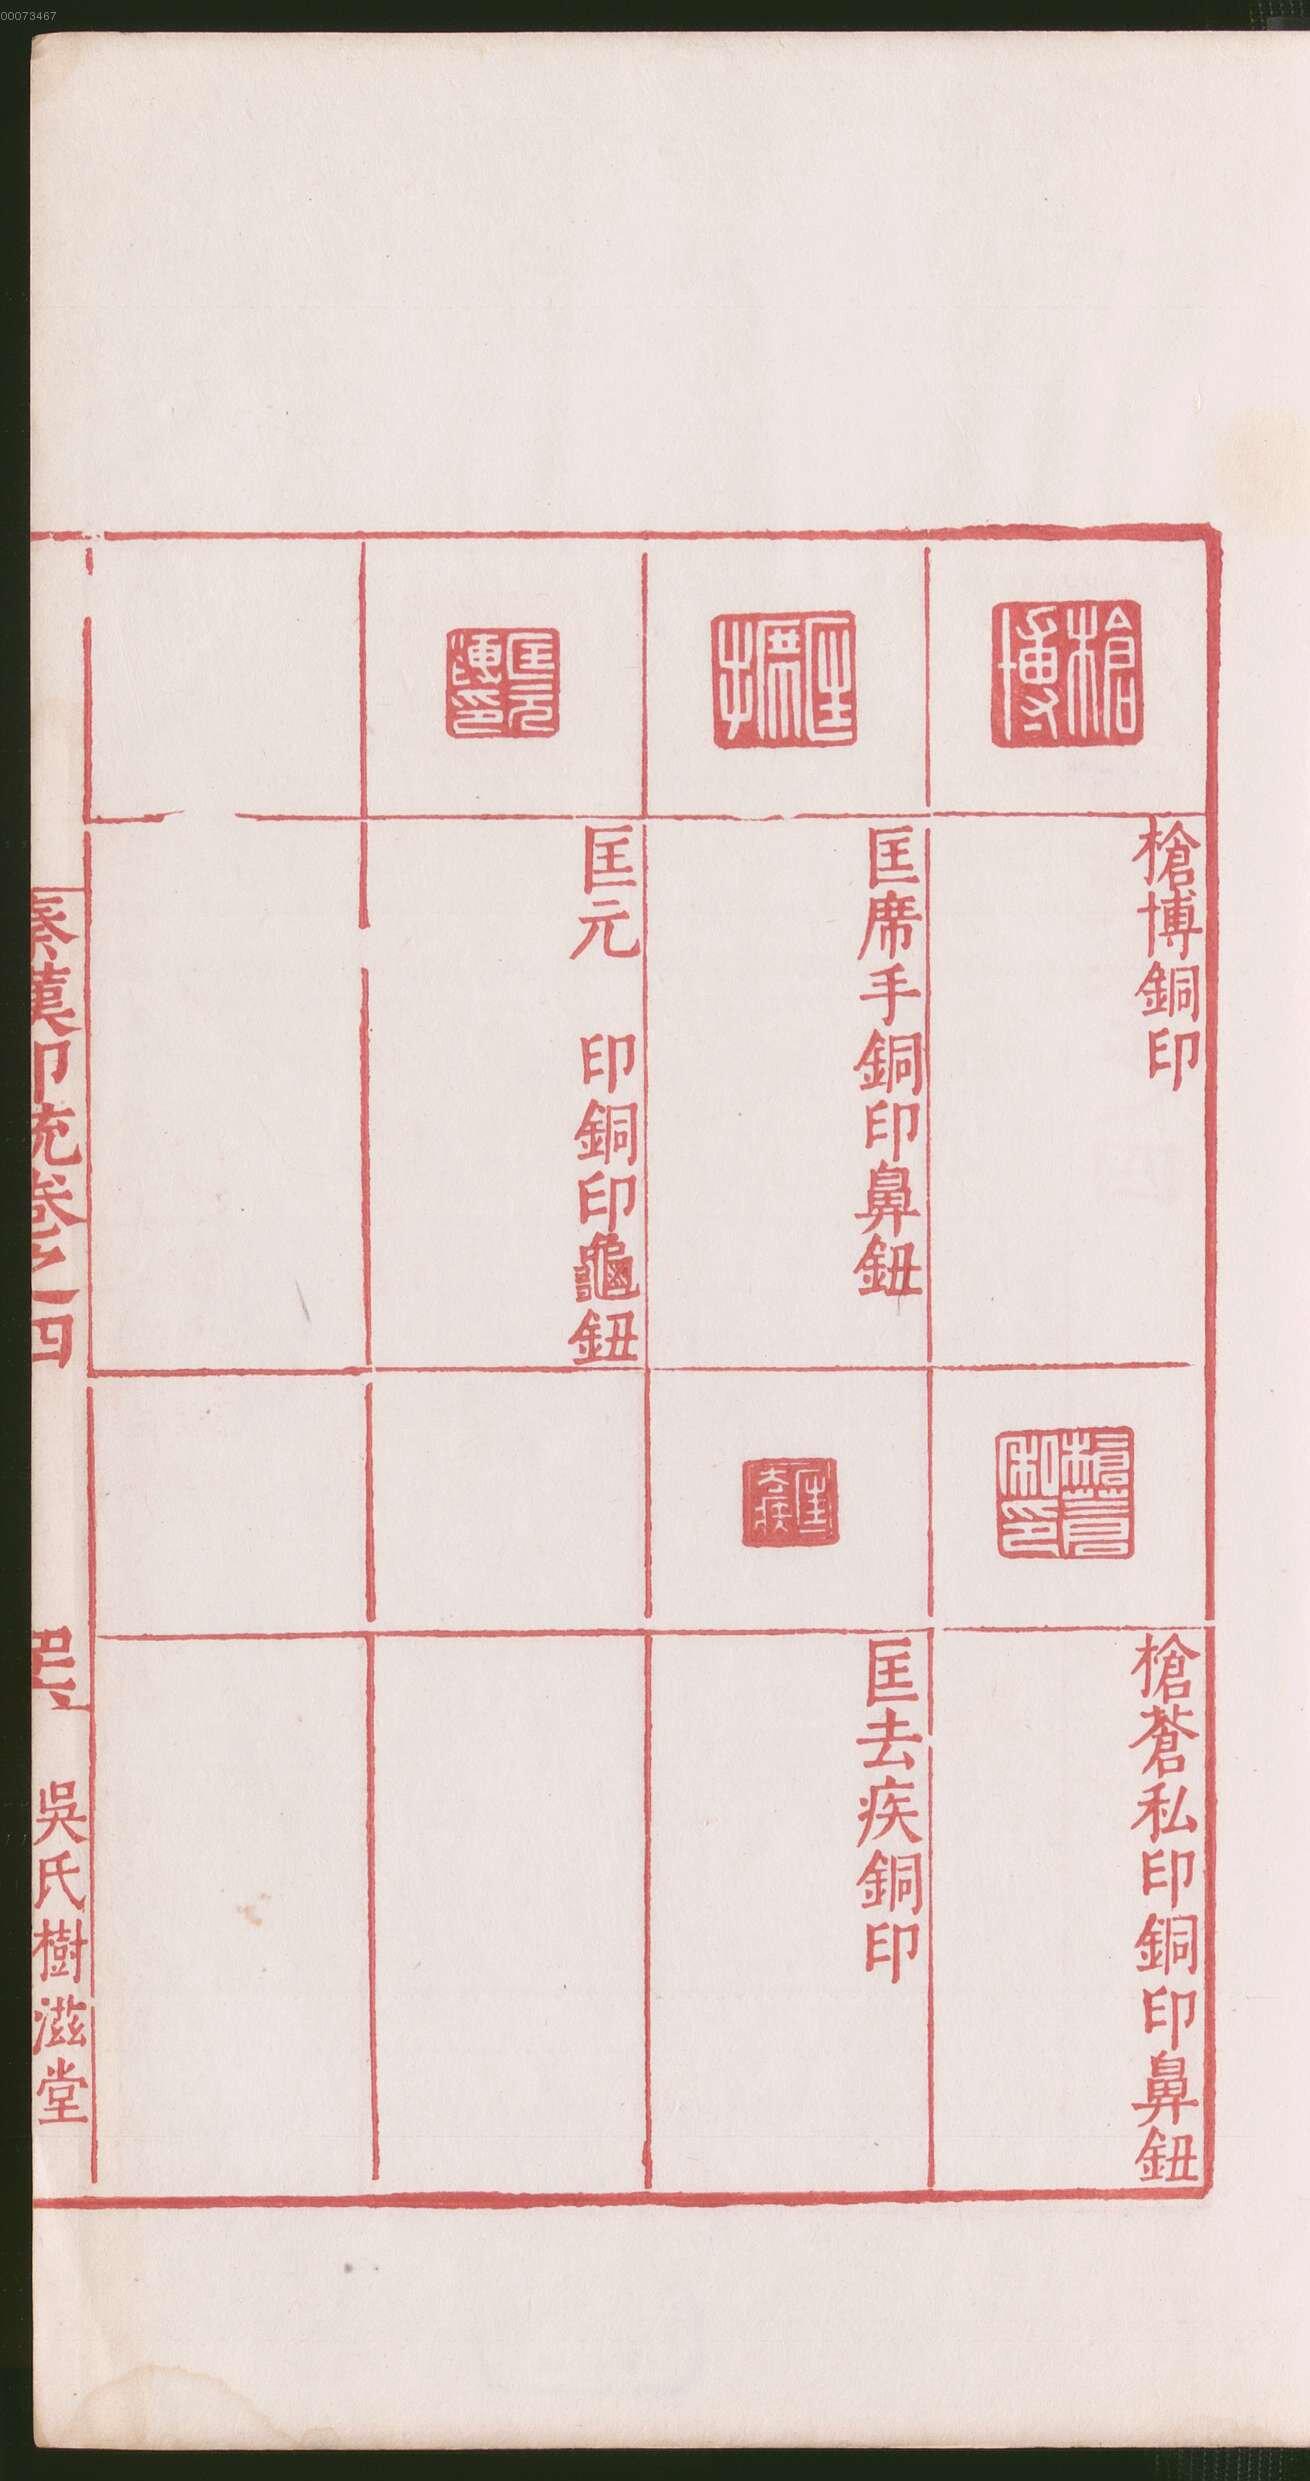 00073467
槍博銅印
匡席手銅印鼻鈕
匡元　印銅印龜鈕
槍蒼私印銅印鼻鈕
匡去疾銅印
秦漢印統卷之四
吳氏樹滋堂